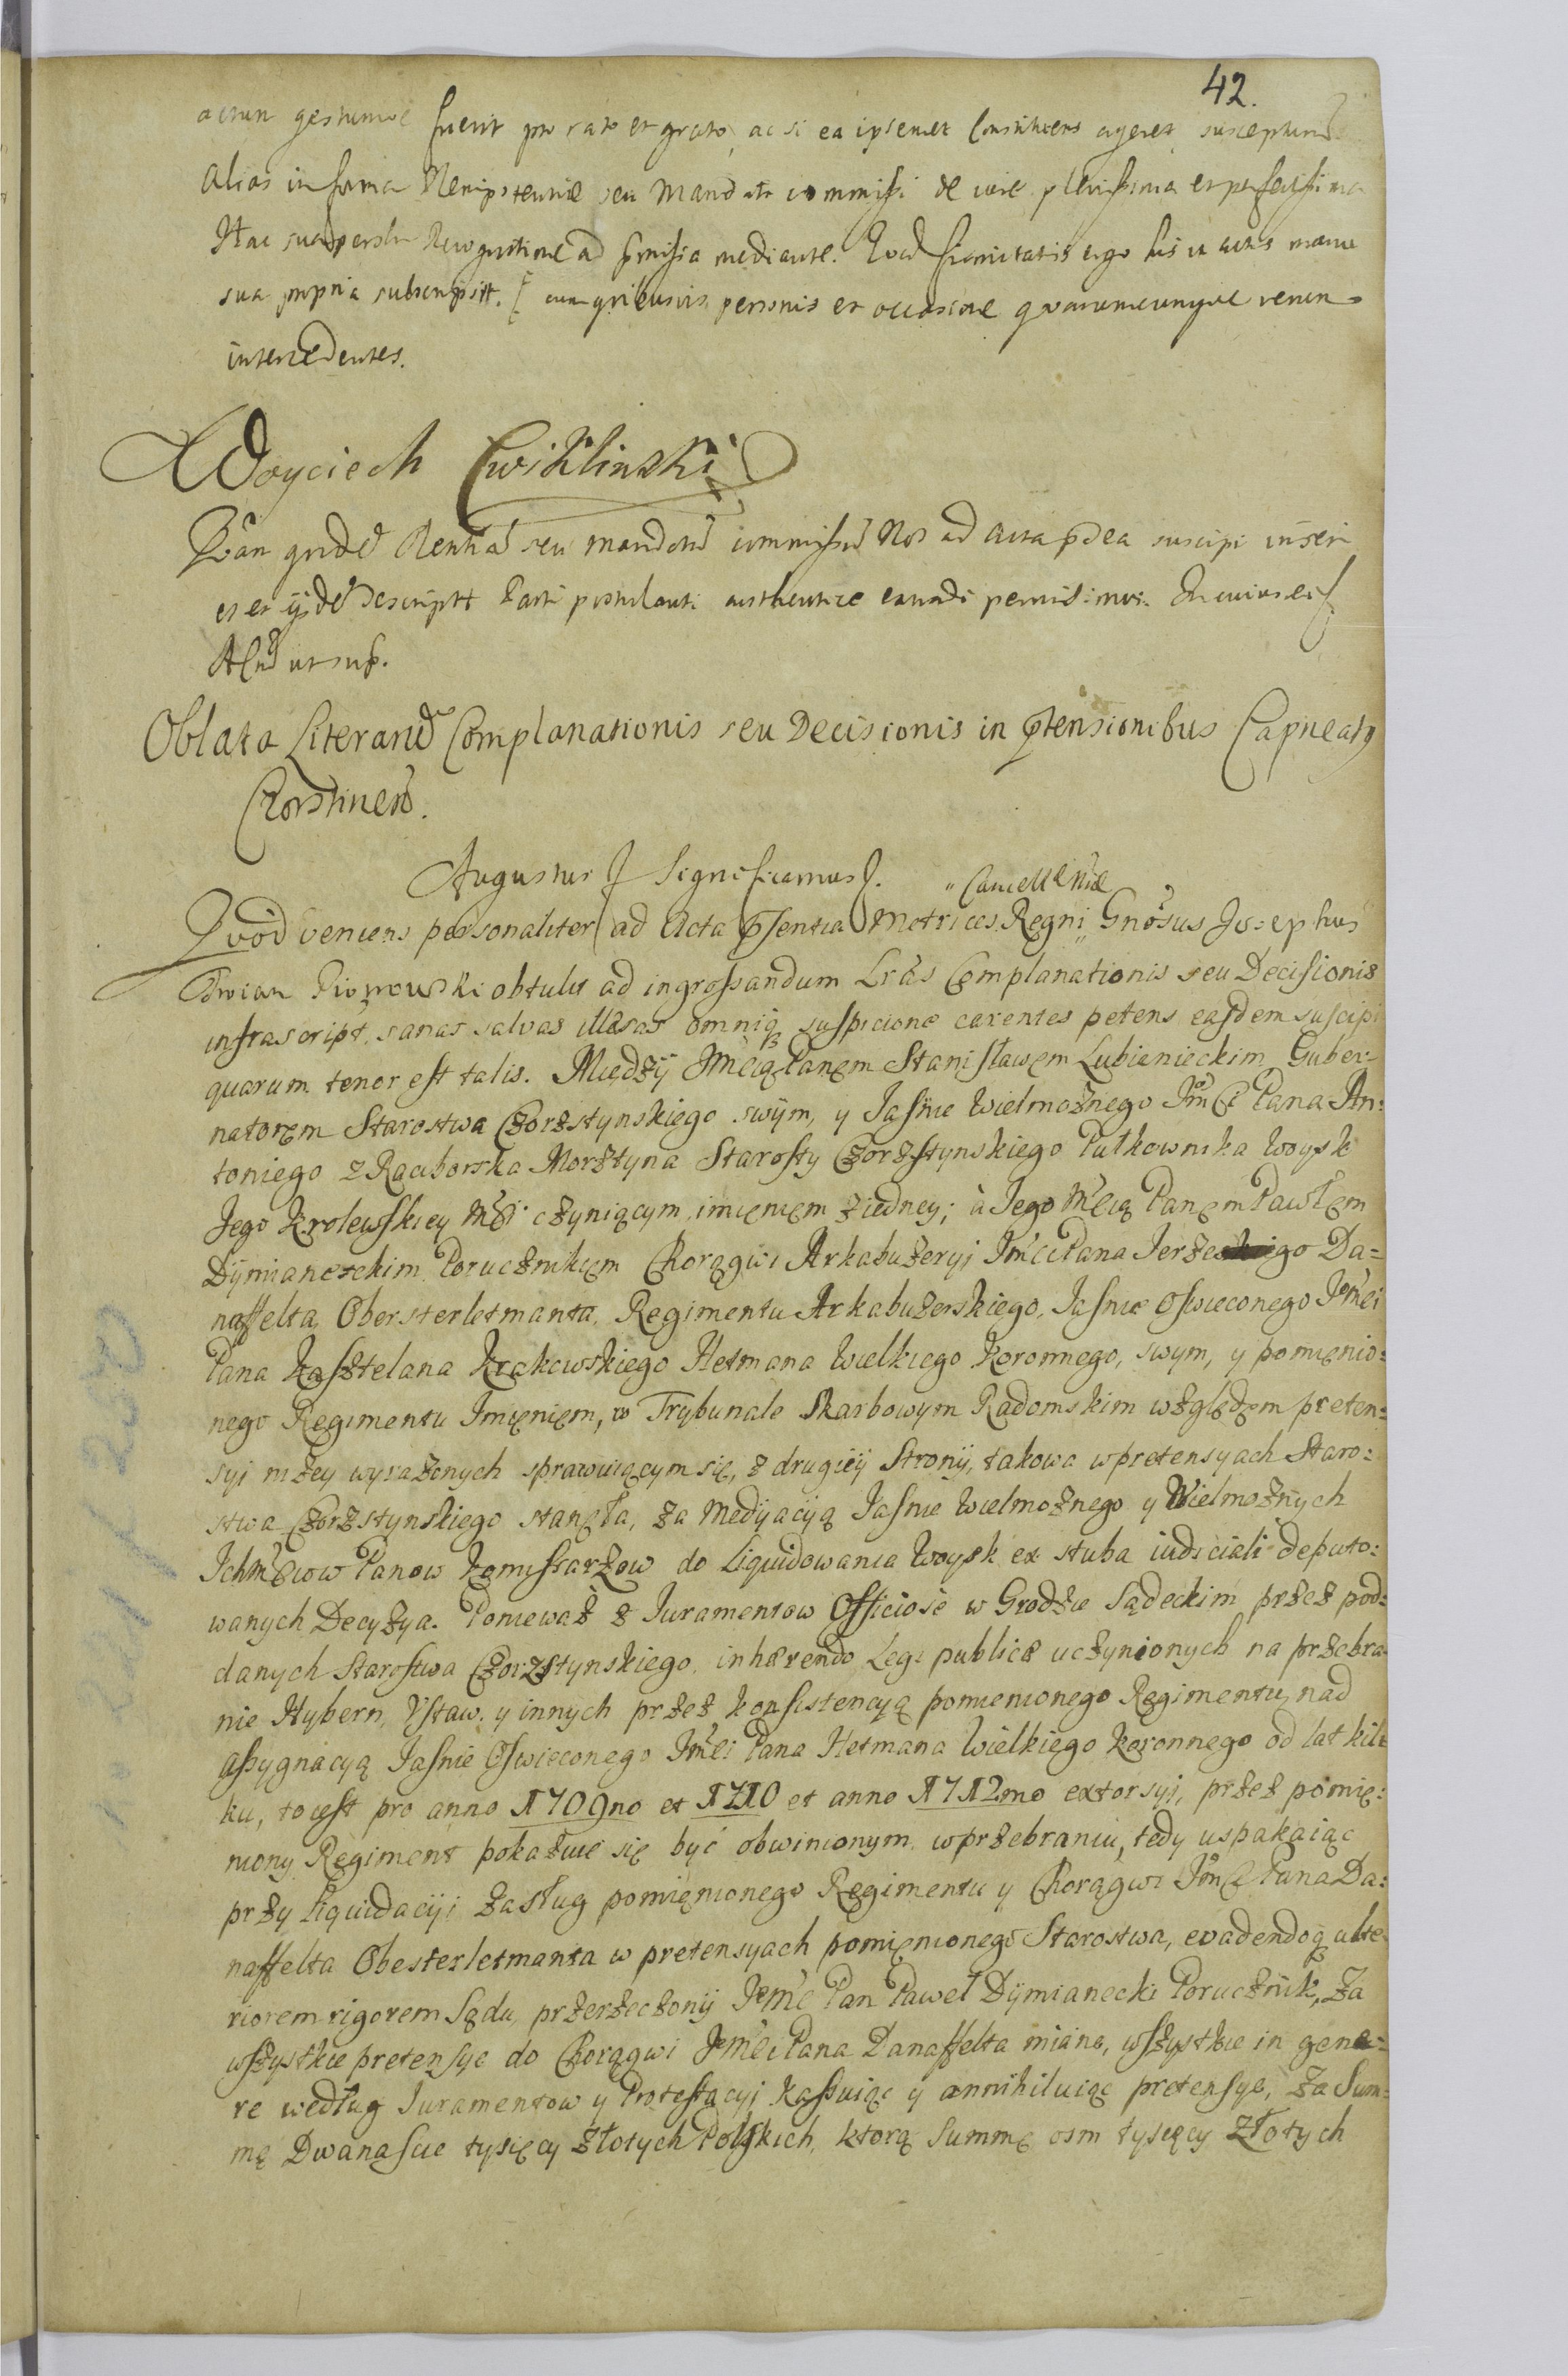 42.
actum gestumve fuerit pro rato et grato, ac si ea ipsemet Constituens ageret, susceptur
Alias in forma Plenipotentiæ seu Mandati commissi de iure plenissima et perfectissima
Hac sua Recognitione ad præmissa mediante. Quod firmitatis ergo his in actis manu
sua propria subscripsit. cum quibusvis personis et occasione quacumcunque rerum
intercedentes.
Woyciech Cwiklinski
Plentiã seu mandatũ commissũ Nos ad Acta pñdea suscipi inseri
et ex ijsdẽ descriptt Parti postulanti authentice extradi permisimus. In cuius rei
Actũ ut sup.
Oblata Literarũ Complanationis seu Decisionis in prtensionibus Capneatg
Czorstineñ.
Augustus Significamus.
Cancellariæ
Quod veniens personaliter ad Acta psentia Metrices Regni Gnosus Josephus
obtulit ad ingrossandum Lras Complanationis seu Decisionis
infrascript. sanas salvas illæsas omniq suspicione carentes petens easdem suscipi
quarum tenor est talis. Między Jmcią Panem Stanisławem Lubienieckim Guber-
natorem Starostwa Czorsztynskiego swym, y Jasnie Wielmożnego Jmci Pana An-
toniego z Raciborska Morsztyna Starosty Czorsztynskiego Pułkownika Woysk
Jego Krolewskiey Msi czyniącym imieniem z iedney; à Jego Mcią Panem Pawłem
Dymianeckim Porucznikiem Chorągwi Arkabuzeryi Jmci Pana Jerzego Da=
naffelta Obersterletmanta, Regimentu Arkabuzerskiego, Jasnie Oswieconego Jemci
Pana Kasztelana Krakowskiego Hetmana Wielkiego Koronnego, swym, y pomienio:
nego Regimentu Imieniem, w Trybunale Skarbowym Radomskim względem preten:
syi niżey wyrażonych sprawuiącym się, z drugiey Strony, takowa w pretensyach Staro:
stwa Czorsztynskiego stanęła, za Medyacyą Jasnie Wielmożnego y Wielmożnych
Ichmciow Panow Komissarzow do Liquidowania Woysk ex stuba iudiciali deputo:
wanych Decyzya. Ponieważ z Iuramentow Officiose w Grodzie Sądeckim przez pod:
danych Starostwa Czorsztynskiego, inhærendo Legi publicæ uczynionych na przebra
nie Hybern, Ustaw, y innych przez konsistencyą pomienionego Regimentu, nad
assygnacyą Jasnie Oswieconego Jmci Pana Hetmana Wielkiego Koronnego od lat kil
ku, to iest pro anno 1709no et 1710 et anno 1712mo extorsyi, przez pomie:
niony Regiment pokazuie się być obwinionym w przebraniu, tedy uspakaiąc
przy Liquidacyi zasług pomienionego Regimentu y Chorągwi Jmci Pana Da:
naffelta Obesterletmanta w pretensyach pomienionego Starostwa, evadendoq ulte
riorem rigorem Sądu, przerzeczony Jemc Pan Paweł Dymianecki Porucznik, za
wszystkie pretensye do Chorągwi Jemci Pana Danaffelta miane, wszystkie in gene=
re według Iuramentow y Protestacyi kassuiąc y annihiluiąc pretensye, za Sum=
mę Dwanascie tysięcy złotych Polskich, ktorą Summę osm tysięcy Złotych